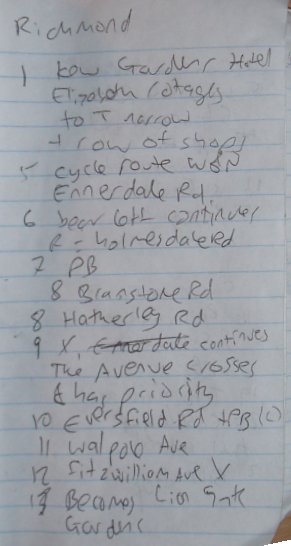 Richmond
1 Kew Gardens Hotel
Elizabeth Cottages
to T narrow
+ row of shops
5 cycle route W&N
Ennerdale Rd
6 bear left continues
R = Holmesdale Rd
7 PB
8 Branstone Rd
8 Hatherley Rd
9 X, continues
The Avenue crosses
& has priority
10 Eversfield Rd +PB (C)
11 Walpole Ave
12 Fitzwilliam Ave X
13 Becomes Lion Gate
Gardens